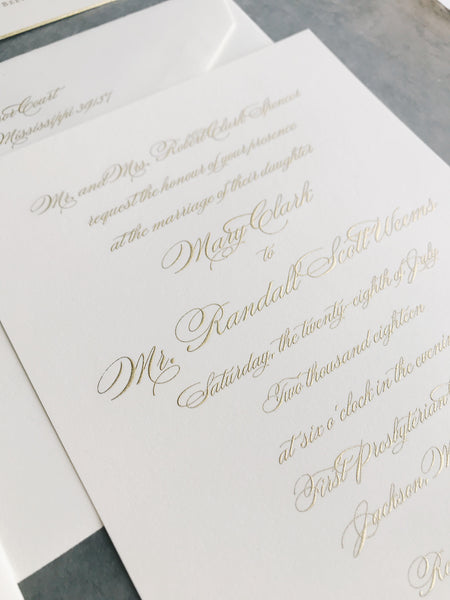 or Court
Mississippi 39157
Mr. and Mrs. Robert Clark Spencer
request the honour of your presence
at the marriage of their daughter
Mary Clark
to
Mr. Randall Scott Weems
Saturday, the twenty-eighth of July
Two thousand eighteen
at six o'clock in the evenin
First Presbyterian
Jackson, M
R